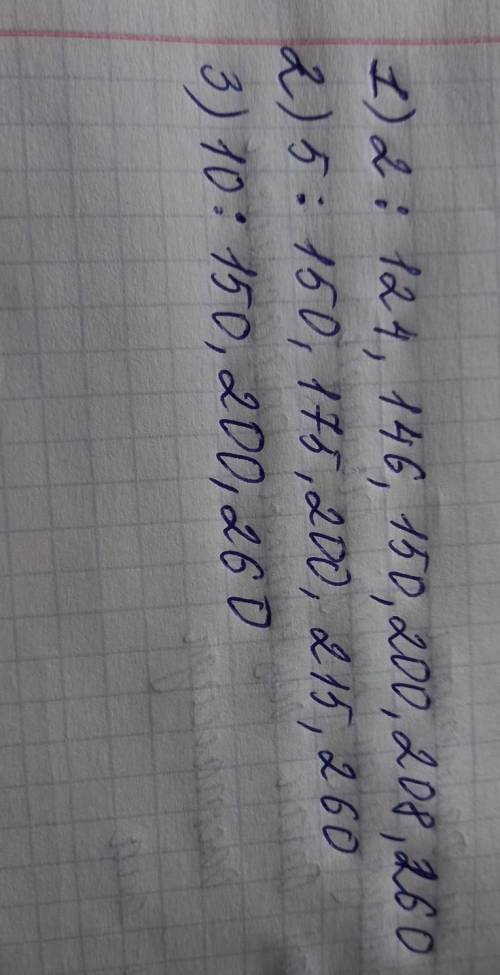 1) 2 : 124, 146, 150, 200, 208, 260
2) 5 : 150, 175, 200, 215, 260
3) 10 : 150, 200, 260